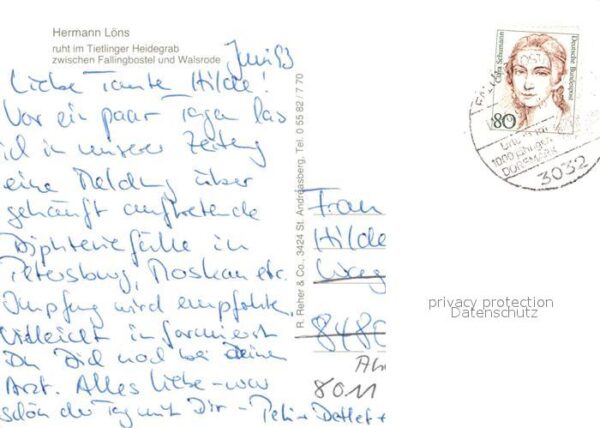 Hermann Löns
ruht im Tietlinger Heidegrab
zwischen Fallingbostel und Walsrode
Liebe Tante Hilde!
Vor ein paar Tagen las
ich in unserer Zeitung
eine Meldung über
gehäuft auftretende
Diphteriefälle in
Petersburg, Moskau etc.
Impfung wird empfohlen,
vielleicht informierst
Du Dich noch bei Deinem
Arzt. Alles Liebe - war
schön der Tag mit Dir - Detlef +
R. Reher & Co., 3424 St. Andreasberg, Tel. 0 55 82 / 7 70
Clara Schumann
Deutsche Bundespost
80
1000jähriges
DORFMARK
3032
Frau
Hilde
8480
8011
privacy protection
Datenschutz